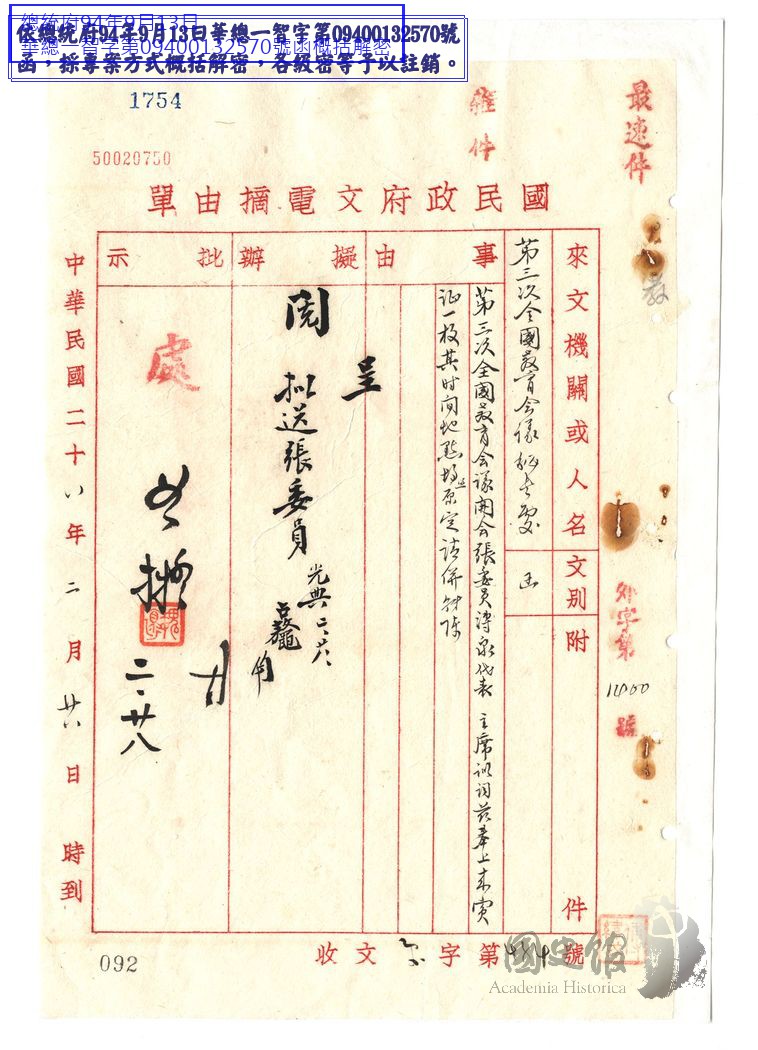 總統府94年9月13日
華總一智字第09400132570號函概括解密
依總統府94年9月13日華總一智字第09400132570號
函，採專案方式概括解密，各級密等予以註銷。
1754
50020750
雜件
最速件
國民政府文電摘由單
來文機關或人名
文別
附件
第三次全國教育會議秘書處
函
事由
第三次全國教育會議開會張委員溥泉代表 主席訓詞茲奉上來賓
証一枚其时间地點均照原定请併
擬辦
呈
閱
拟送張委員
光典
批示
處
二·廿八
中華民國二十八年二月廿八日 時到
外字第
1400
號
收文 字第 號
092
國史館
Academia Historica